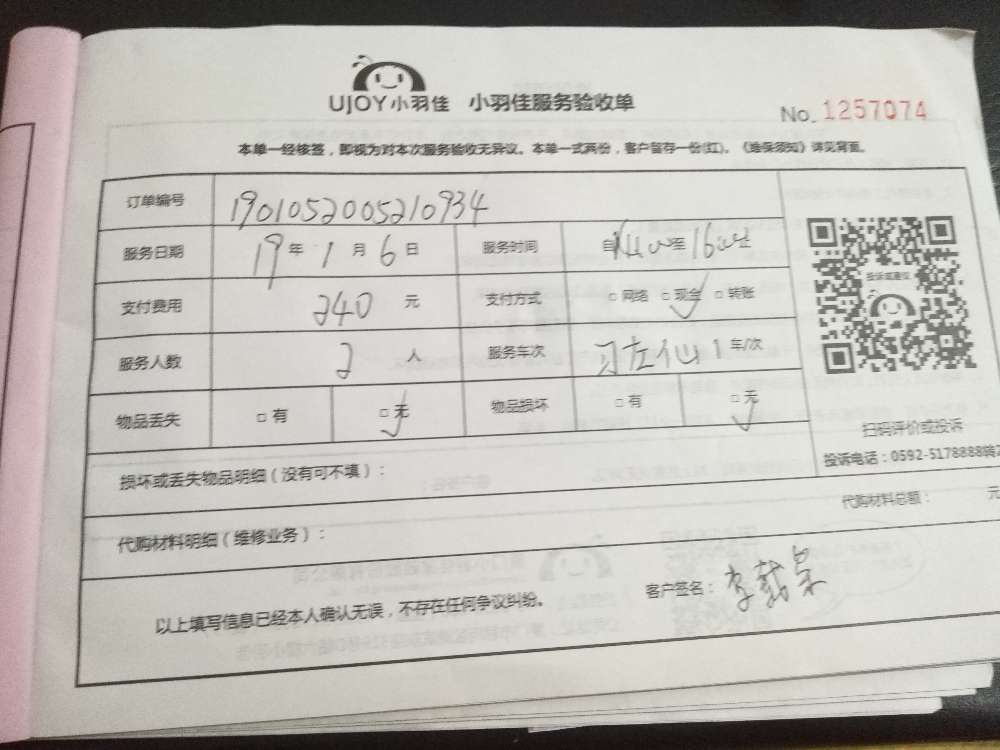 UJOY小羽佳 小羽佳服务验收单
No. 1257074
本单一经核签，即视为对本次服务验收无异议。本单一式两份，客户留存一份(红)。《维保须知》详见背面。
订单编号 1901052005210934
服务日期 19 年 1 月 6 日 服务时间 自 至 16
支付费用 240 元 支付方式 □ 网络 □ 现金 □ 转账
投诉或建议
服务人数 2 人 服务车次 1 车/次
物品丢失 □ 有 □ 无 物品损坏 □ 有 □ 无
扫码评价或投诉
投诉电话：0592-5178888转2
损坏或丢失物品明细（没有可不填）：
代购材料总额： 元
代购材料明细（维修业务）：
以上填写信息已经本人确认无误，不存在任何争议纠纷。 客户签名：李